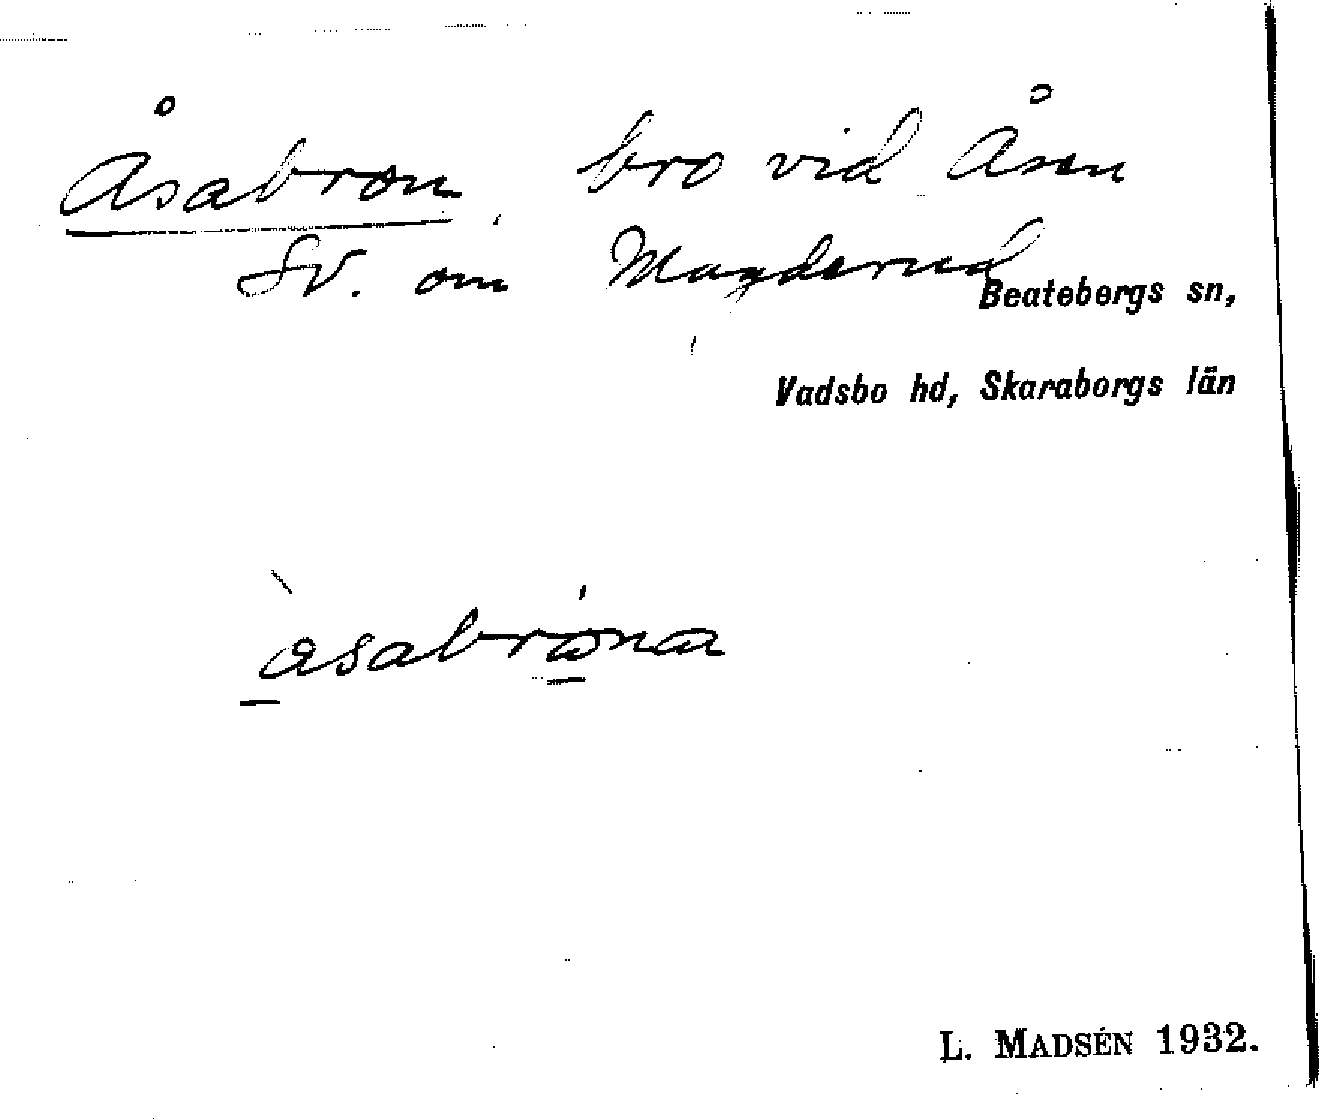 Åsabron, bro vid Åsen
SV. om Magderud
Beatebergs sn,
Vadsbo hd, Skaraborgs län
àsabróna
L. MADSÉN 1932.